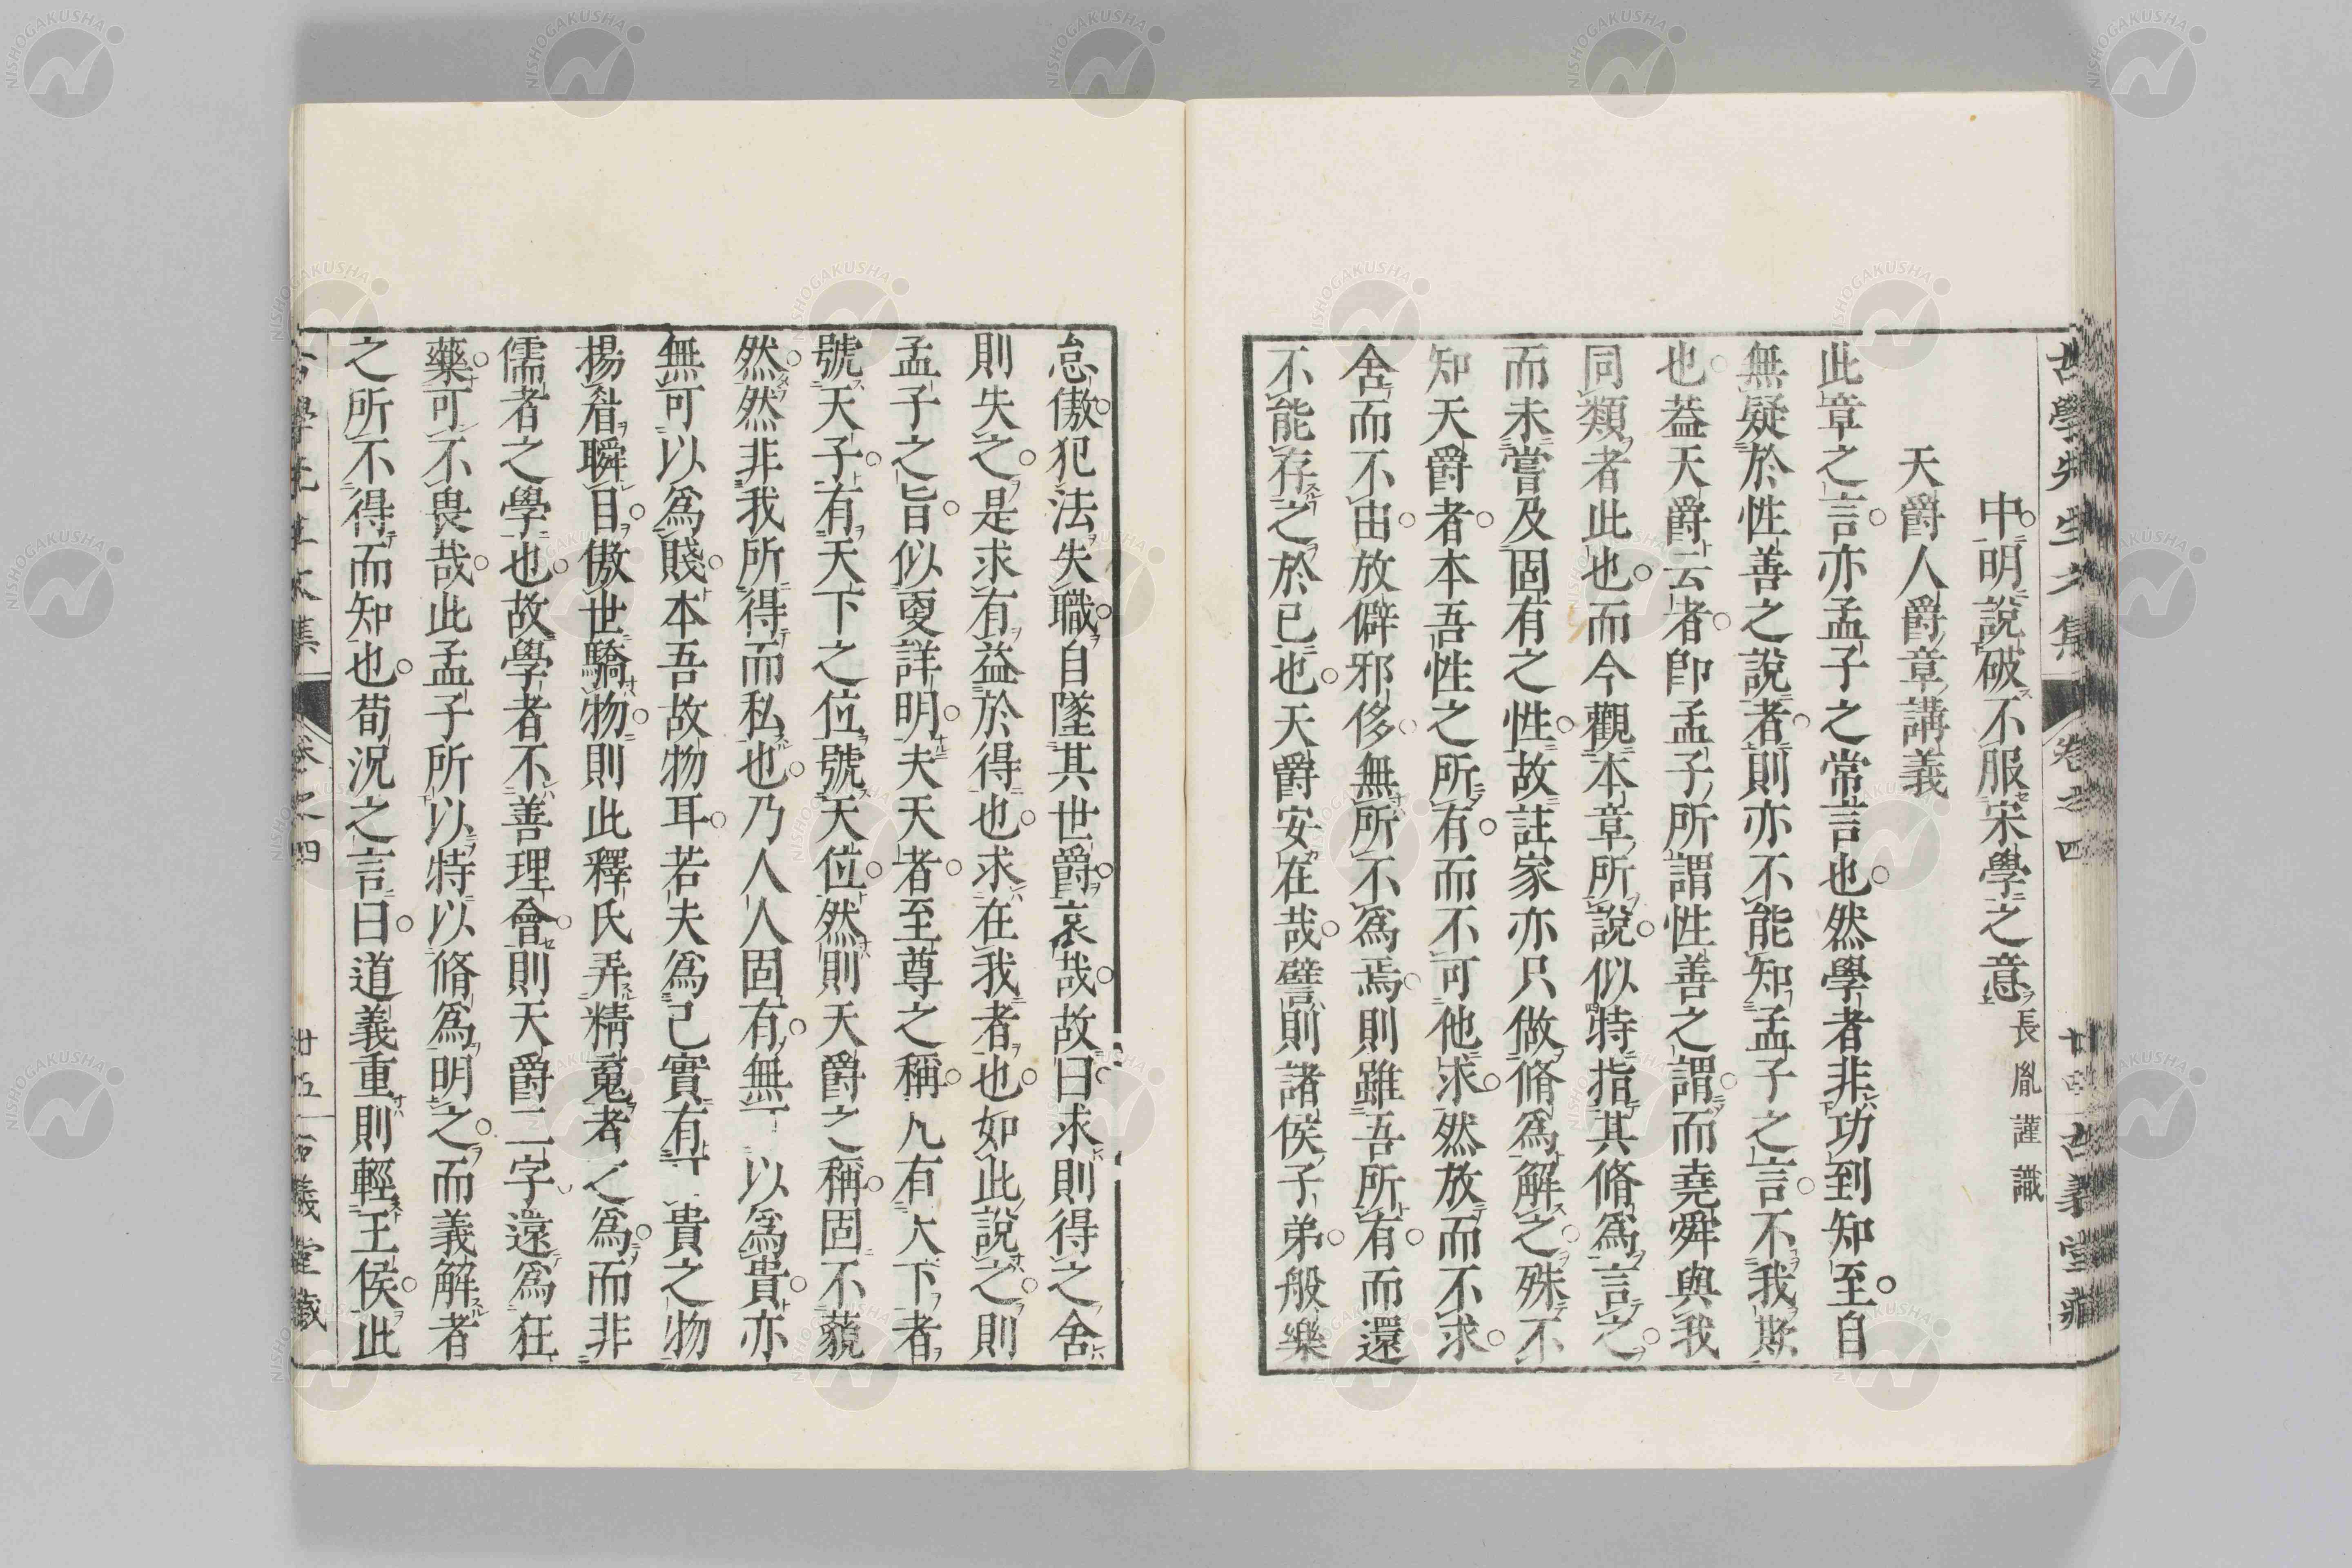 古學先生文集 卷之四 廿四 古義堂藏
中明說破不服宋學之意長胤謹識
天爵人爵章講義
此章之言亦孟子之常言也然學者非功到知至自
無疑於性善之說者則亦不能知孟子之言不我欺
也葢天爵云者卽孟子所謂性善之謂而堯舜與我
同類者此也而今觀本章所說似特指其脩爲言之
而未嘗及固有之性故註家亦只做脩爲解之殊不
知天爵者本吾性之所有而不可他求然放而不求
舍而不由放僻邪侈無所不爲焉則雖吾所有而還
不能存之於已也天爵安在哉譬則諸侯子弟般樂
怠傲犯法失職自墜其世爵哀哉故曰求則得之舍
則失之是求有益於得也求在我者也如此說之則
孟子之旨似更詳明夫天者至尊之稱凡有大下者
號天子有天下之位號天位然則天爵之稱固不藐
然然非我所得而私也乃人人固有無 以爲貴亦
無可以爲賤本吾故物耳若夫爲己實有 貴之物
揚眉瞬目傲世驕物則此釋氏弄精䰟者之爲而非
儒者之學也故學者不善理會則天爵二字還爲狂
藥可不畏哉此孟子所以特以脩爲明之而義解者
之所不得而知也荀況之言曰道義重則輕王侯此
古學先生文集 卷之四 廿五 古義堂藏
NISHOGAKUSHA